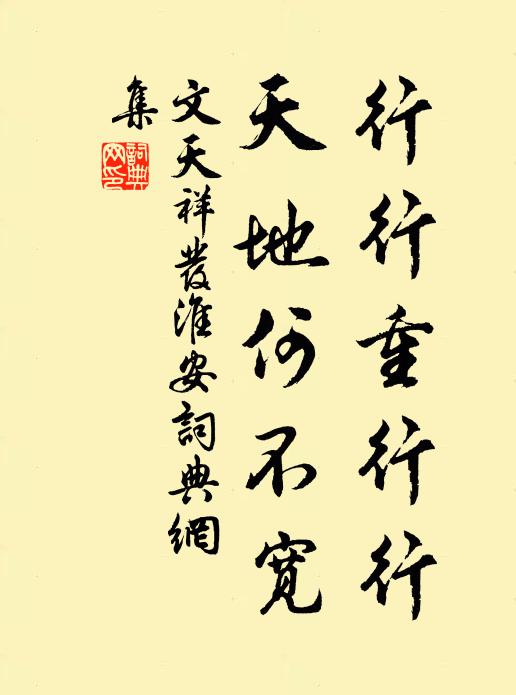 行行重行行
天地何不寬
文天祥發淮安詞典網
集
詞典
网印